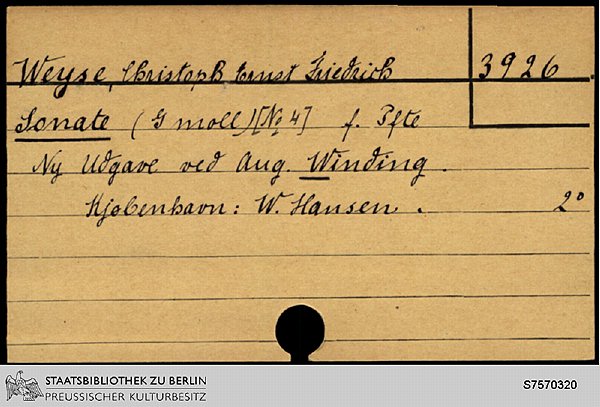 Weyse, Christoph Ernst Friedrich 3926
Sonate (G moll) [No 4] f. Pfte
Ny Udgave ved Aug. Winding.
Kjøbenhavn: W. Hansen. 2°
STAATSBIBLIOTHEK ZU BERLIN
PREUSSISCHER KULTURBESITZ
S7570320